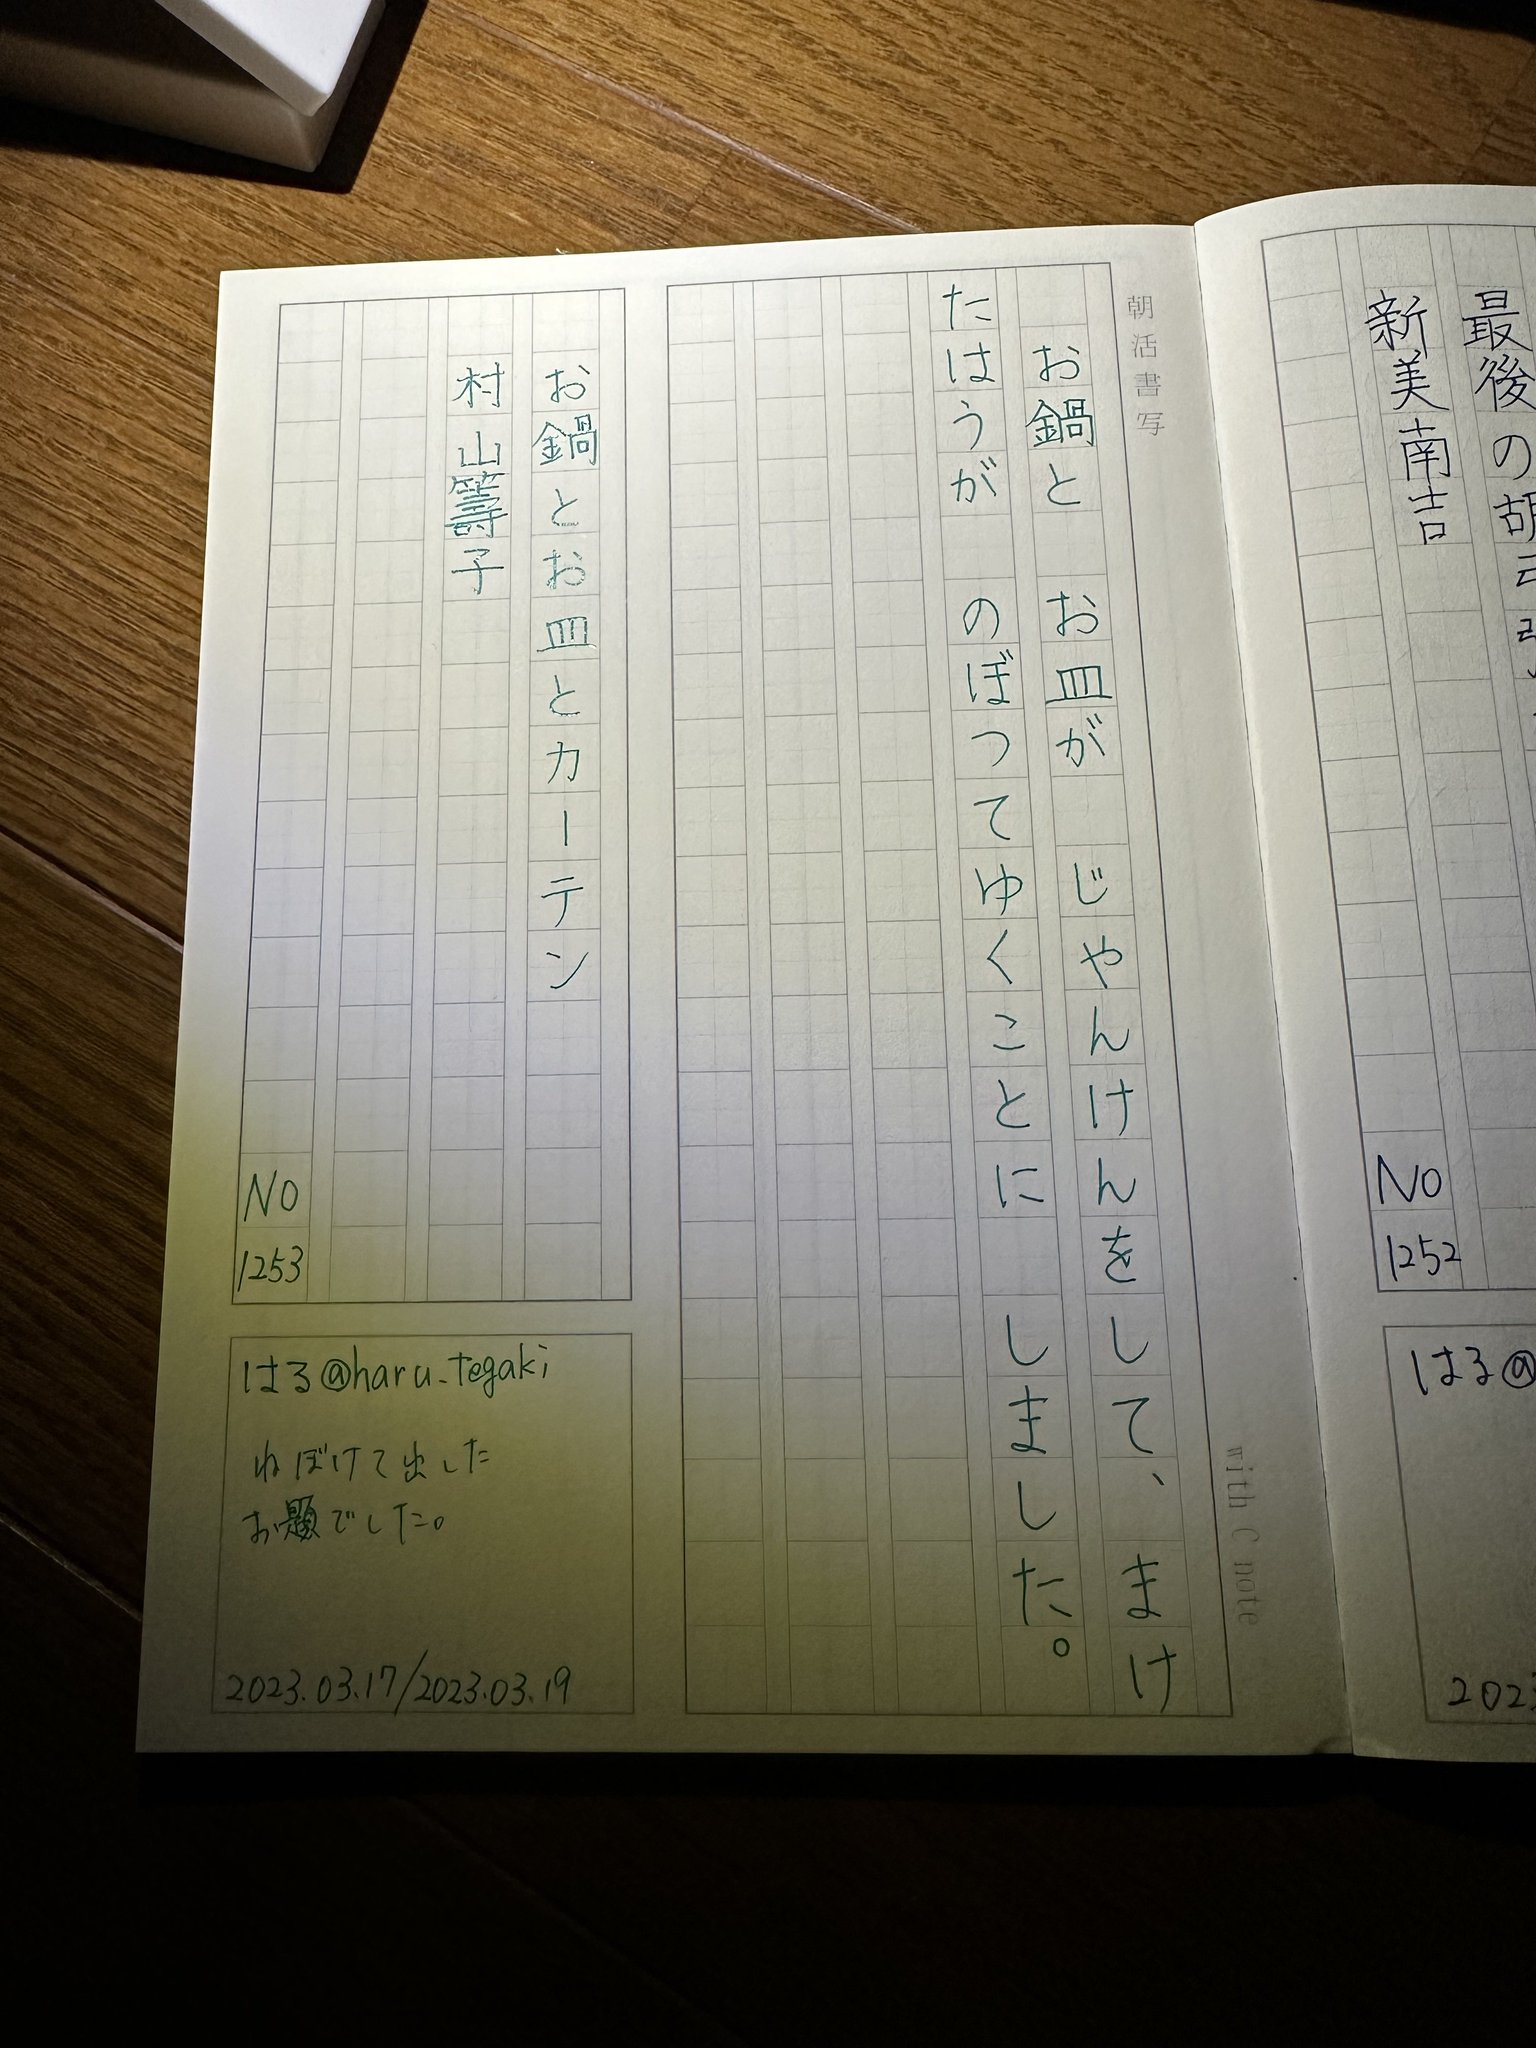 最後の胡弓弾
新美南吉
NO
1252
はる@
2023
朝活書写
with C note
お鍋と　お皿が　じやんけんをして、まけ
たはうが　のぼつてゆくことに　しました。
お鍋とお皿とカーテン
村山籌子
NO
1253
はる@haru_tegaki
ねぼけて出した
お題でした。
2023.03.17/2023.03.19